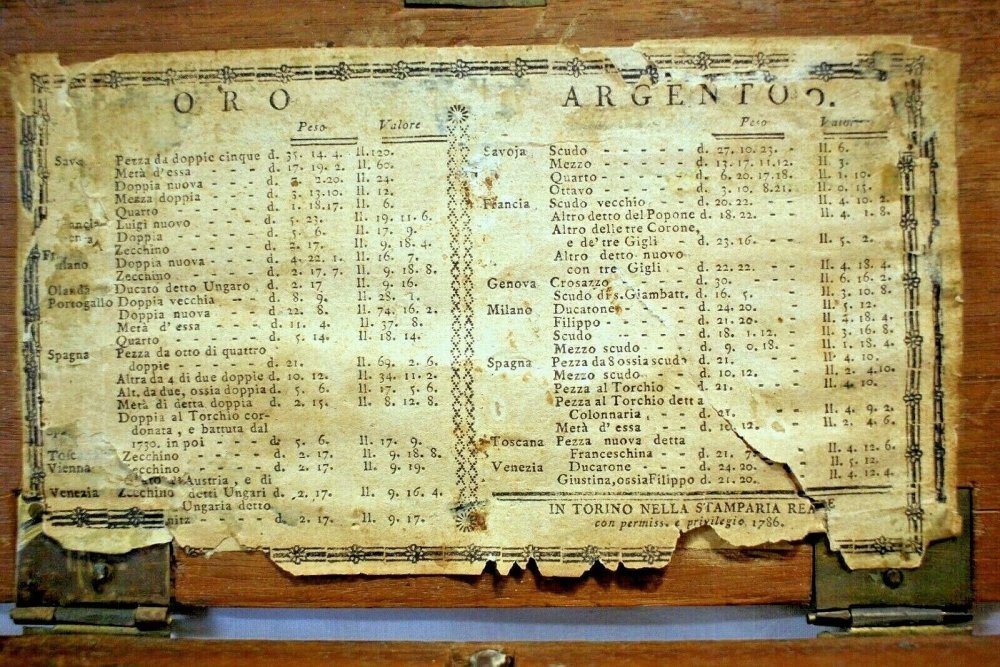 ORO
Peso Valore
Pezza da doppie cinque d. 35. 14. 4. ll. 120.
Metà d'essa - - - d. 17. 19. 2. ll. 60.
Doppia nuova - - - d. 2.20. ll. 24.
Mezza doppia - - - d. 3. 13.10. ll. 12.
Quarto - - - - d. 1. 18.17. ll. 6.
Luigi nuovo - - - d. 5. 23. ll. 19. 11. 6.
Doppia - - - - d. 5. 6. ll. 17. 9.
Zecchino - - - - d. 2. 17. ll. 9. 18. 4.
Doppia nuova - - - d. 4. 22. 1. ll. 16. 7.
Zecchino - - - - d. 2. 17. 7. ll. 9. 18. 8.
Olanda Ducato detto Ungaro d. 2. 17 ll. 9. 16.
Portogallo Doppia vecchia - - d. 8. 9. ll. 28. 1.
Doppia nuova - - d. 22. 8. ll. 74. 16. 2.
Metà d'essa - - - d. 11. 4. ll. 37. 8.
Quarto - - - - d. 5. 14. ll. 18. 14.
Spagna Pezza da otto di quattro
doppie - - - - d. 21. ll. 69. 2. 6.
Altra da 4 di due doppie d. 10. 12. ll. 34. 11. 2.
Alt. da due, ossia doppia d. 5. 6. ll. 17. 5. 6.
Metà di detta doppia d. 2. 15. ll. 8. 12. 8.
Doppia al Torchio cor-
donata, e battuta dal
1730. in poi - - - d. 5. 6. ll. 17. 9.
Zecchino - - - - d. 2. 17. ll. 9. 18. 8.
Vienna Zecchino - - - - d. 2. 17. ll. 9. 19.
d'Austria, e di
Venezia Zecchino detti Ungari d. 2. 17. ll. 9. 16. 4.
Ungaria detto
nitz - - - d. 2. 17. ll. 9. 17.
ARGENTO
Peso Valore
Savoja Scudo - - - - d. 27. 10. 23. - ll. 6.
Mezzo - - - - d. 13. 17. 11.12. ll. 3.
Quarto - - - - d. 6. 20. 17.18. ll. 1. 10.
Ottavo - - - - d. 3. 10. 8.21. ll. 0. 15.
Francia Scudo vecchio - - d. 20. 22. - - ll. 4. 10. 2.
Altro detto del Popone d. 18. 22. - - ll. 4. 1. 8.
Altro delle tre Corone,
e de' tre Gigli - - d. 23. 16. - - ll. 5. 2.
Altro detto nuovo
con tre Gigli - - d. 22. 22. - ll. 4. 18. 4.
Genova Crosazzo - - - - d. 30. - - - ll. 6. 16. 2.
Scudo di s. Giambatt. d. 16. 5. - - ll. 3. 10. 8.
Milano Ducatone - - - - d. 24. 20. - - ll. 5. 12.
Filippo - - - - d. 21. 20. - - ll. 4. 18. 4.
Scudo - - - - d. 18. 1. 12. - ll. 3. 16. 8.
Mezzo scudo - - - d. 9. 0. 18. - ll. 1. 18. 4.
Spagna Pezza da 8 ossia scudo d. 21. - - - ll. 4. 10.
Mezzo scudo - - - d. 10. 12. - - ll. 2. 4.10.
Pezza al Torchio - d. 21. - - - ll. 4. 10.
Pezza al Torchio detta
Colonnaria - - - d. 21. - - ll. 4. 9. 2.
Metà d'essa - - - d. 10. 12. - - ll. 2. 4. 6.
Toscana Pezza nuova detta
Franceschina - - - d. 21. ll. 4. 12. 6.
Venezia Ducatone - - - d. 24. 20. ll. 5. 12.
Giustina, ossia Filippo d. 21. 20. ll. 4. 12. 4.
IN TORINO NELLA STAMPARIA REALE
con permiss. e privilegio, 1786.